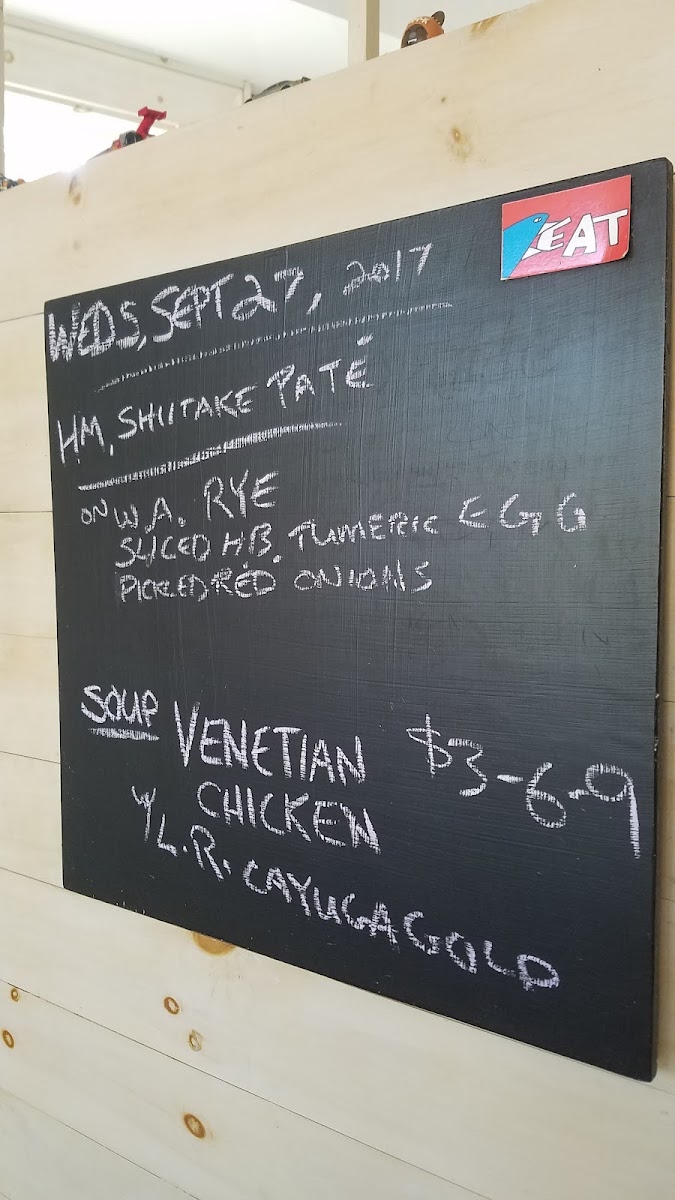 EAT
WEDS, SEPT 27, 2017
HM, SHIITAKE PATÉ
ON W.A. RYE
SLICED H.B. TUMERIC EGG
PICKLED RED ONIONS
SOUP VENETIAN $3-6-9
CHICKEN
W/ L.R. CAYUGA GOLD